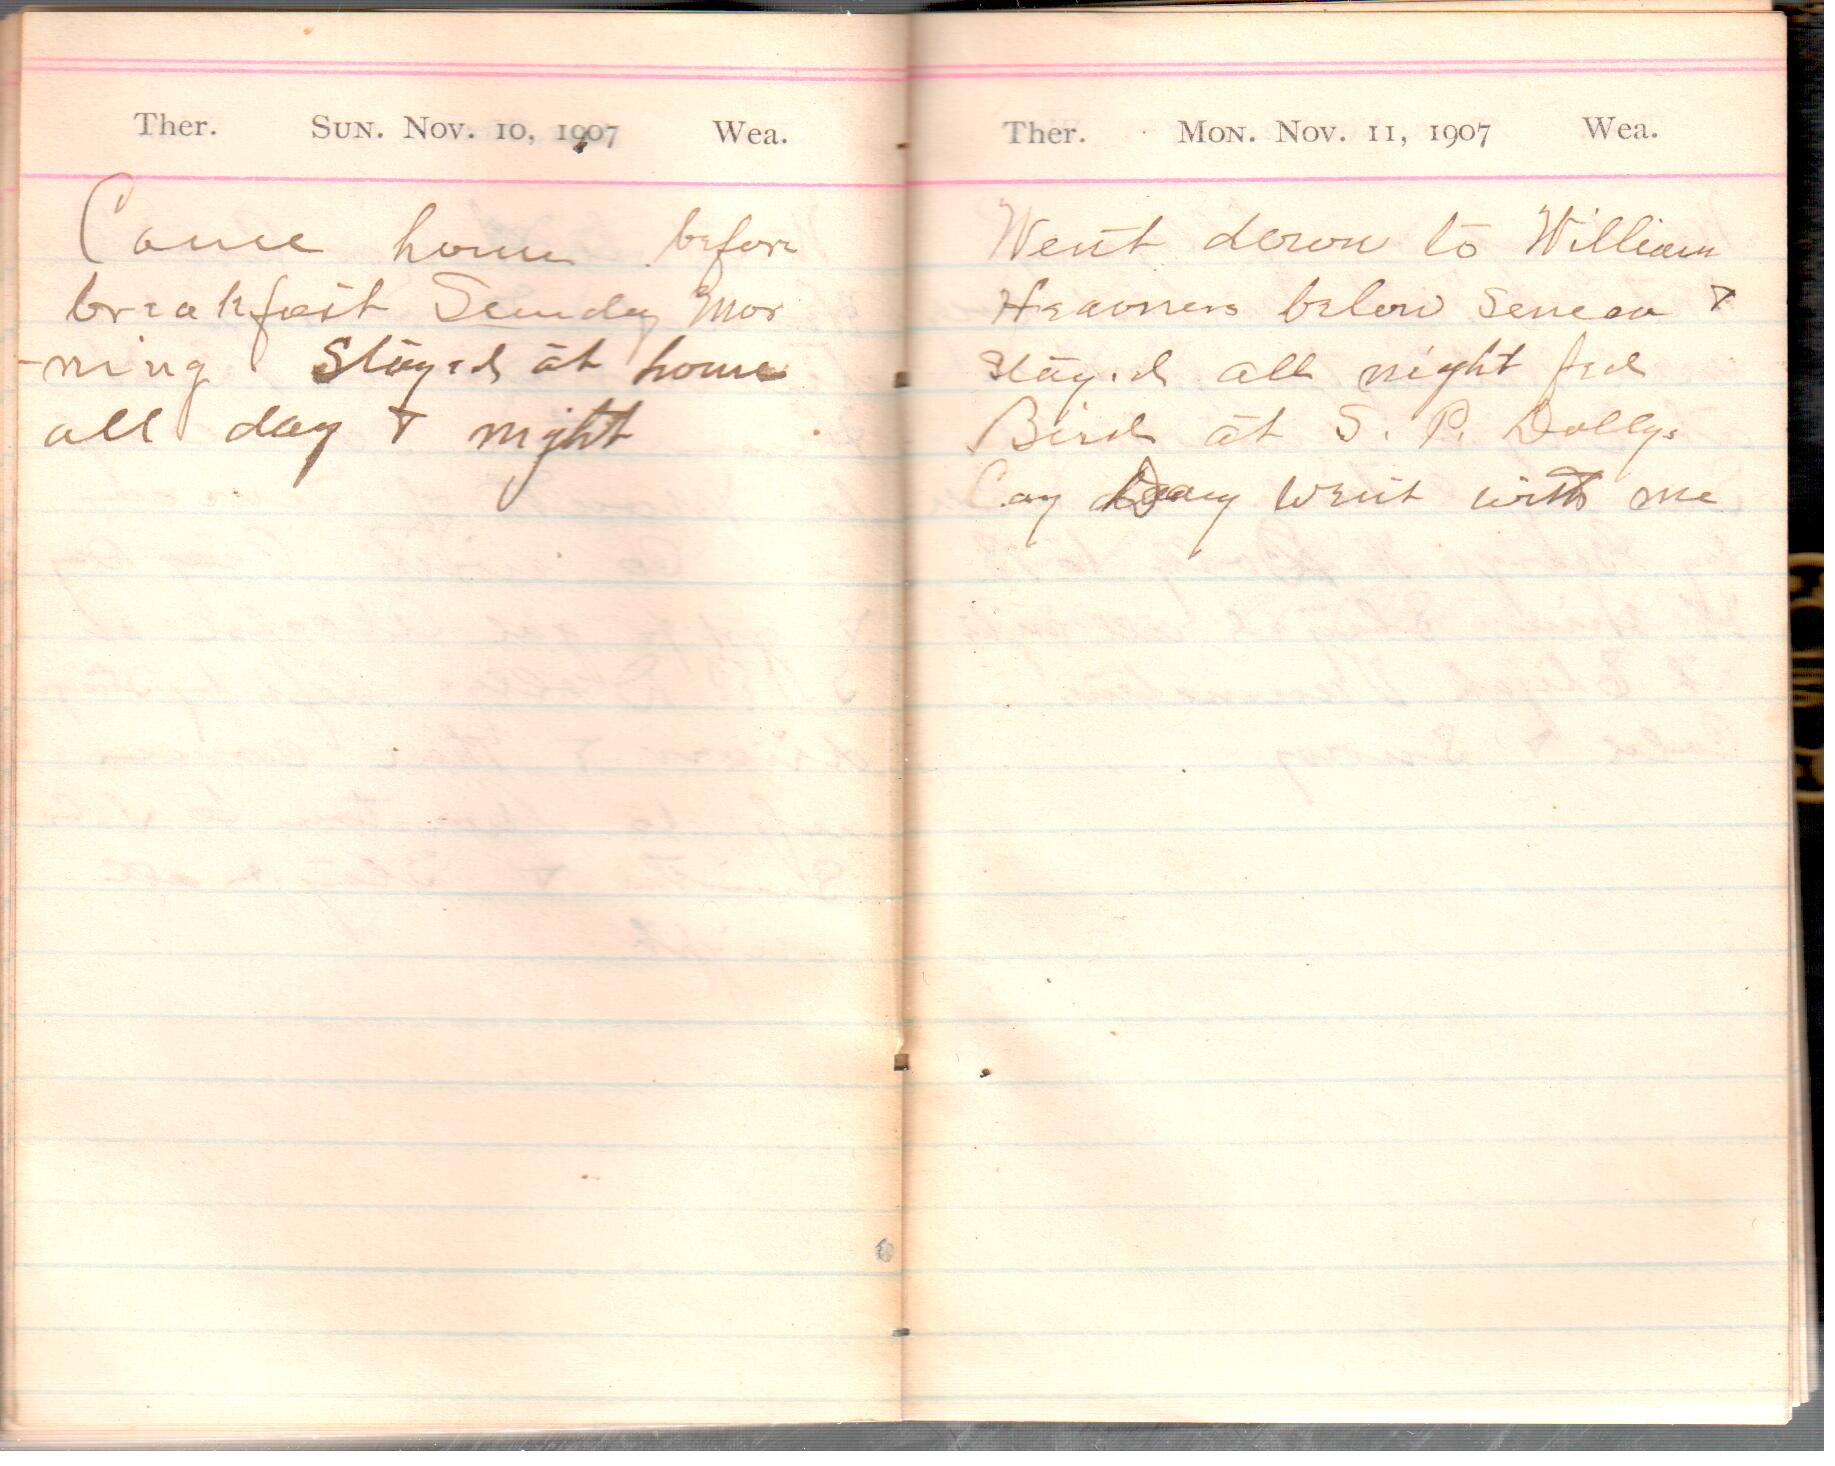 Ther. Sun. Nov. 10, 1907 Wea.
Came home before
breakfast Sunday Mor
-ning Stayed at home
all day & night
Ther. Mon. Nov. 11, 1907 Wea.
Went down to William
Heavners below Seneca &
Stayed all night fed
Bird at S. P. Dollys
Cay went with me